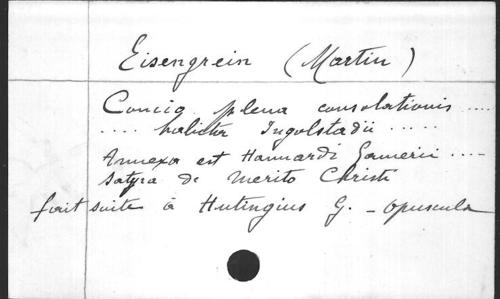 Eisengrein (Martin)
Concio plena consolationis ....
.... habita Ingolstadii .....
Annexa est Hannardi Gamerii ....
satyra de merito Christi
fait suite à Hutingius G. - Opuscula